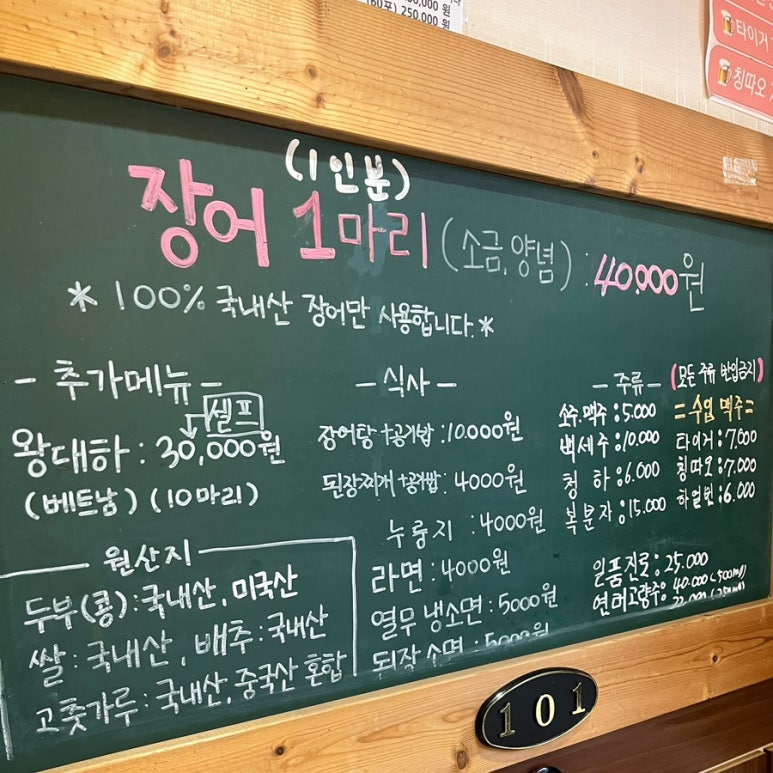 250,000 원
타이거
칭따오
(1인분)
장어 1마리 (소금, 양념) : 40,000원
* 100% 국내산 장어만 사용합니다. *
- 추가메뉴 -
셀프
왕대하 : 30,000원
(베트남) (10마리)
원산지
두부(콩) : 국내산, 미국산
쌀 : 국내산, 배추 : 국내산
고춧가루 : 국내산, 중국산 혼합
- 식사 -
장어탕 +공기밥 : 10.000원
된장찌개 +공기밥 : 4000원
누룽지 : 4000원
라면 : 4000원
열무 냉소면 : 5000원
된장 소면 : 5000원
- 주류 - (모든 주류 반입금지)
소주.맥주 : 5.000
백세주 : 10.000
청 하 : 6.000
복분자 : 15.000
= 수입 맥주 =
타이거 : 7.000
칭따오 : 7.000
하얼빈 : 6.000
일품진로 : 25.000
연태고량주 : 40.000 (500ml)
101